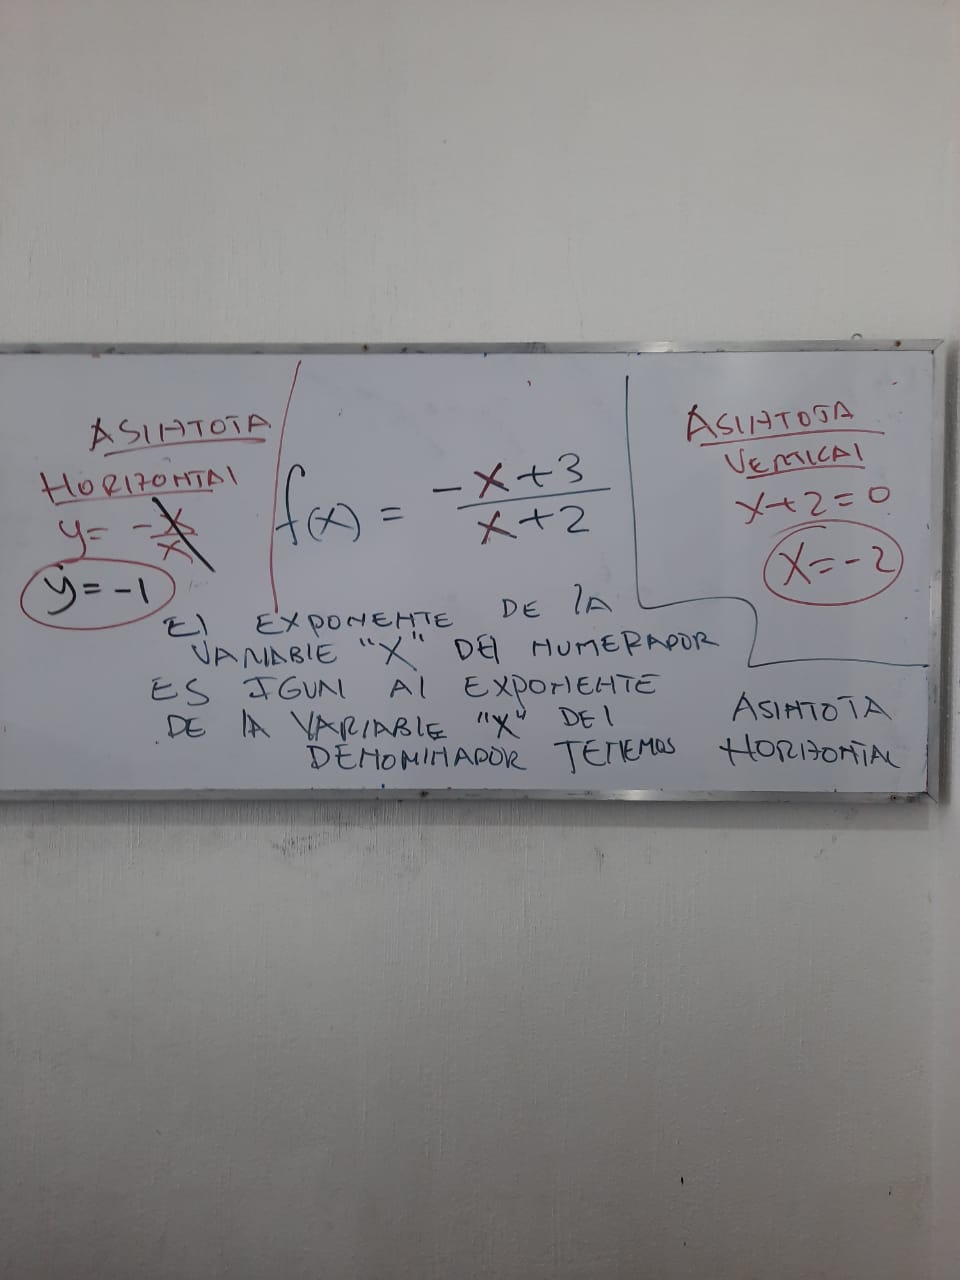 ASINTOTA
HORIZONTAL
y = -x/x
y = -1
f(x) = -x+3
x+2
ASINTOTA
VERTICAL
x+2=0
x=-2
El EXPONENTE DE lA
VARIABlE "X" DEl NUMERADOR
ES IGUAl Al EXPONENTE
DE lA VARIABLE "X" DEl
DENOMINADOR TENEMOS
ASINTOTA
HORIZONTAL